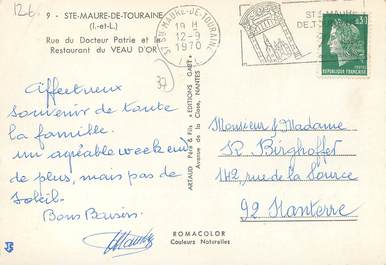 126
9 - STE-MAURE-DE-TOURAINE
(I.-et-L.)
Rue du Docteur Patrie et le
Restaurant du VEAU D'OR
37
STE-MAURE-DE-TOURAINE
12-9
1970
I.-L.
STE-MAURE
DE-T
0,30
REPUBLIQUE FRANCAISE
Affectueux
Souvenir de toute
la famille.
un agréable weekend
de plus, mais pas de
soleil.
Bons Baisers.
ARTAUD Père & Fils « EDITIONS GABY »
Avenue de la Close, NANTES
Monsieur & Madame
R. Birghoffer
142, rue de la Source
92 Nanterre
ROMACOLOR
Couleurs Naturelles